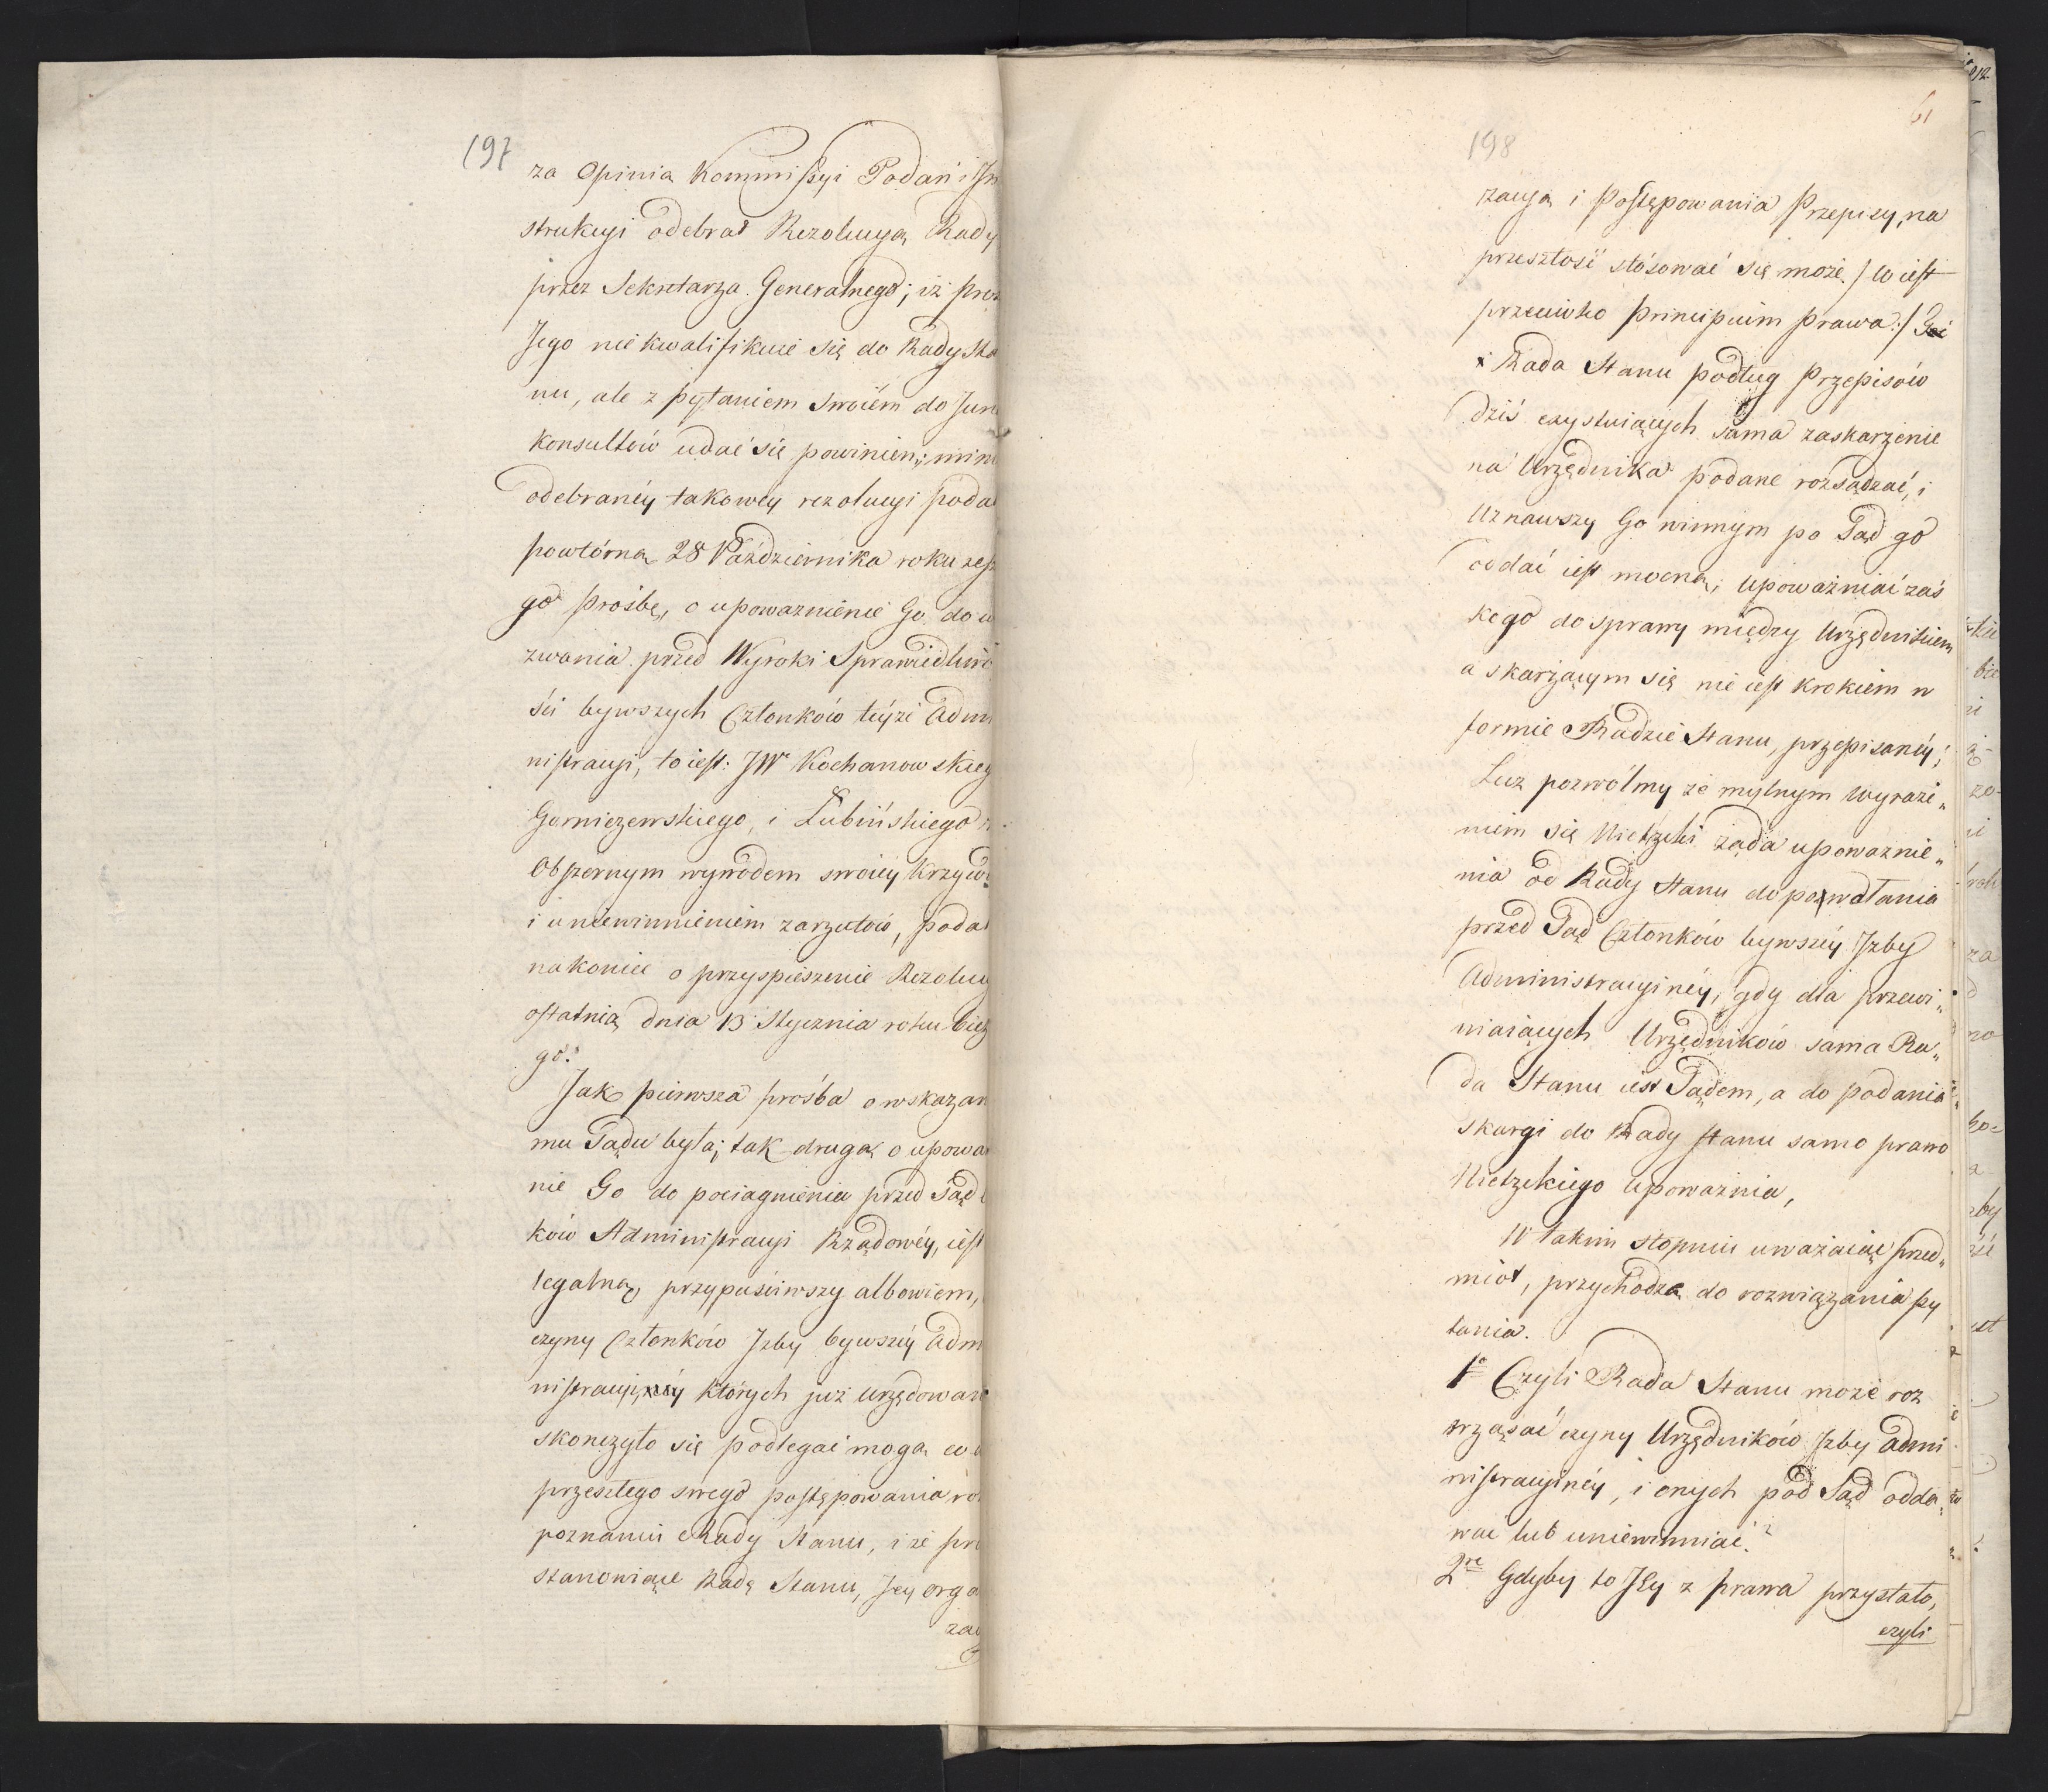 197
za Opinią Kommissyi Podań i In
strukcyi odebrał Rezolucyą Rady
przez Sekretarza Generalnego; iż proz
Jego nie kwalifikuie się do Rady Sta
nu, ale z pytaniem swoiém do Juris
konsultów udać się powinien; mimo
odebranéy takowéy rezolucyi poda
powtórną 28 Października roku zesz
go prośbę, o upoważnienie Go do
zwania przed Wyroki Sprawiedliwo
ści bywszych Członków téyże Admi
nistracyi, to iest: JW Kochanowskieg
Garniczewskiego, i Łubińskiego
Obszernym wywodem swoiéy krzywd
i uniewinnieniem zarzutów, podał
nakoniec o przyspieszenie Rezolucy
ostatnią dnia 13 Stycznia roku bież
go.
Jak pierwsza prośba o wskazan
mu Sądu była; tak druga o upoważ
nie Go do pociągnienia przed Sąd
ków Administracyi Rządowéy, iest
legalną, przypuściwszy albowiem,
czyny Członków Izby bywszéy Adm
nistracyi, których już urzędowan
skończyło się podlegać mogą co
przeszłego swego postępowania ro
poznaniu Rady Stanu, i że pr
stanowiące Radę Stanu, Jéy orga
zac
61
198
zacyą i Postępowania Przepisy, na
przeszłość stósować się może./ Co iest
przeciwko principuim prawa:/
i Rada Stanu podług Przepisów
dziś exystuiących sama zaskarżenie
na Urzędnika podane rozsądzać, i
Uznawszy Go winnym po Sąd go
oddać iest mocną; upoważniać zaś
kogo do sprawy między Urzędnikiem
a skarżącym się nie iest krokiem w
formie Radzie Stanu, przepisanéy;
Lecz pozwólmy że mylnym wyraże„
niem się Nietzcki żąda upoważnie„
nia od Rady Stanu do powołania
przed Sąd Członków bywszéy Izby
Administracyinéy, gdy dla przewi„
niaiących Urzędników sama Ra„
da Stanu iest Sądem, a do podania
skargi do Rady Stanu samo prawo
Nietzckiego upoważnia,
W takim stopniu uważaiąc przed„
miot, przychodzę do rozwiązania py
tania.
1º Czyli Rada Stanu może roz
trząsać czyny Urzędników Izby Admi
nistracyinéy, i onych pod Sąd odda„
wać lub uniewinniać?
2re Gdyby to Jéy z prawa przystało,
czyli